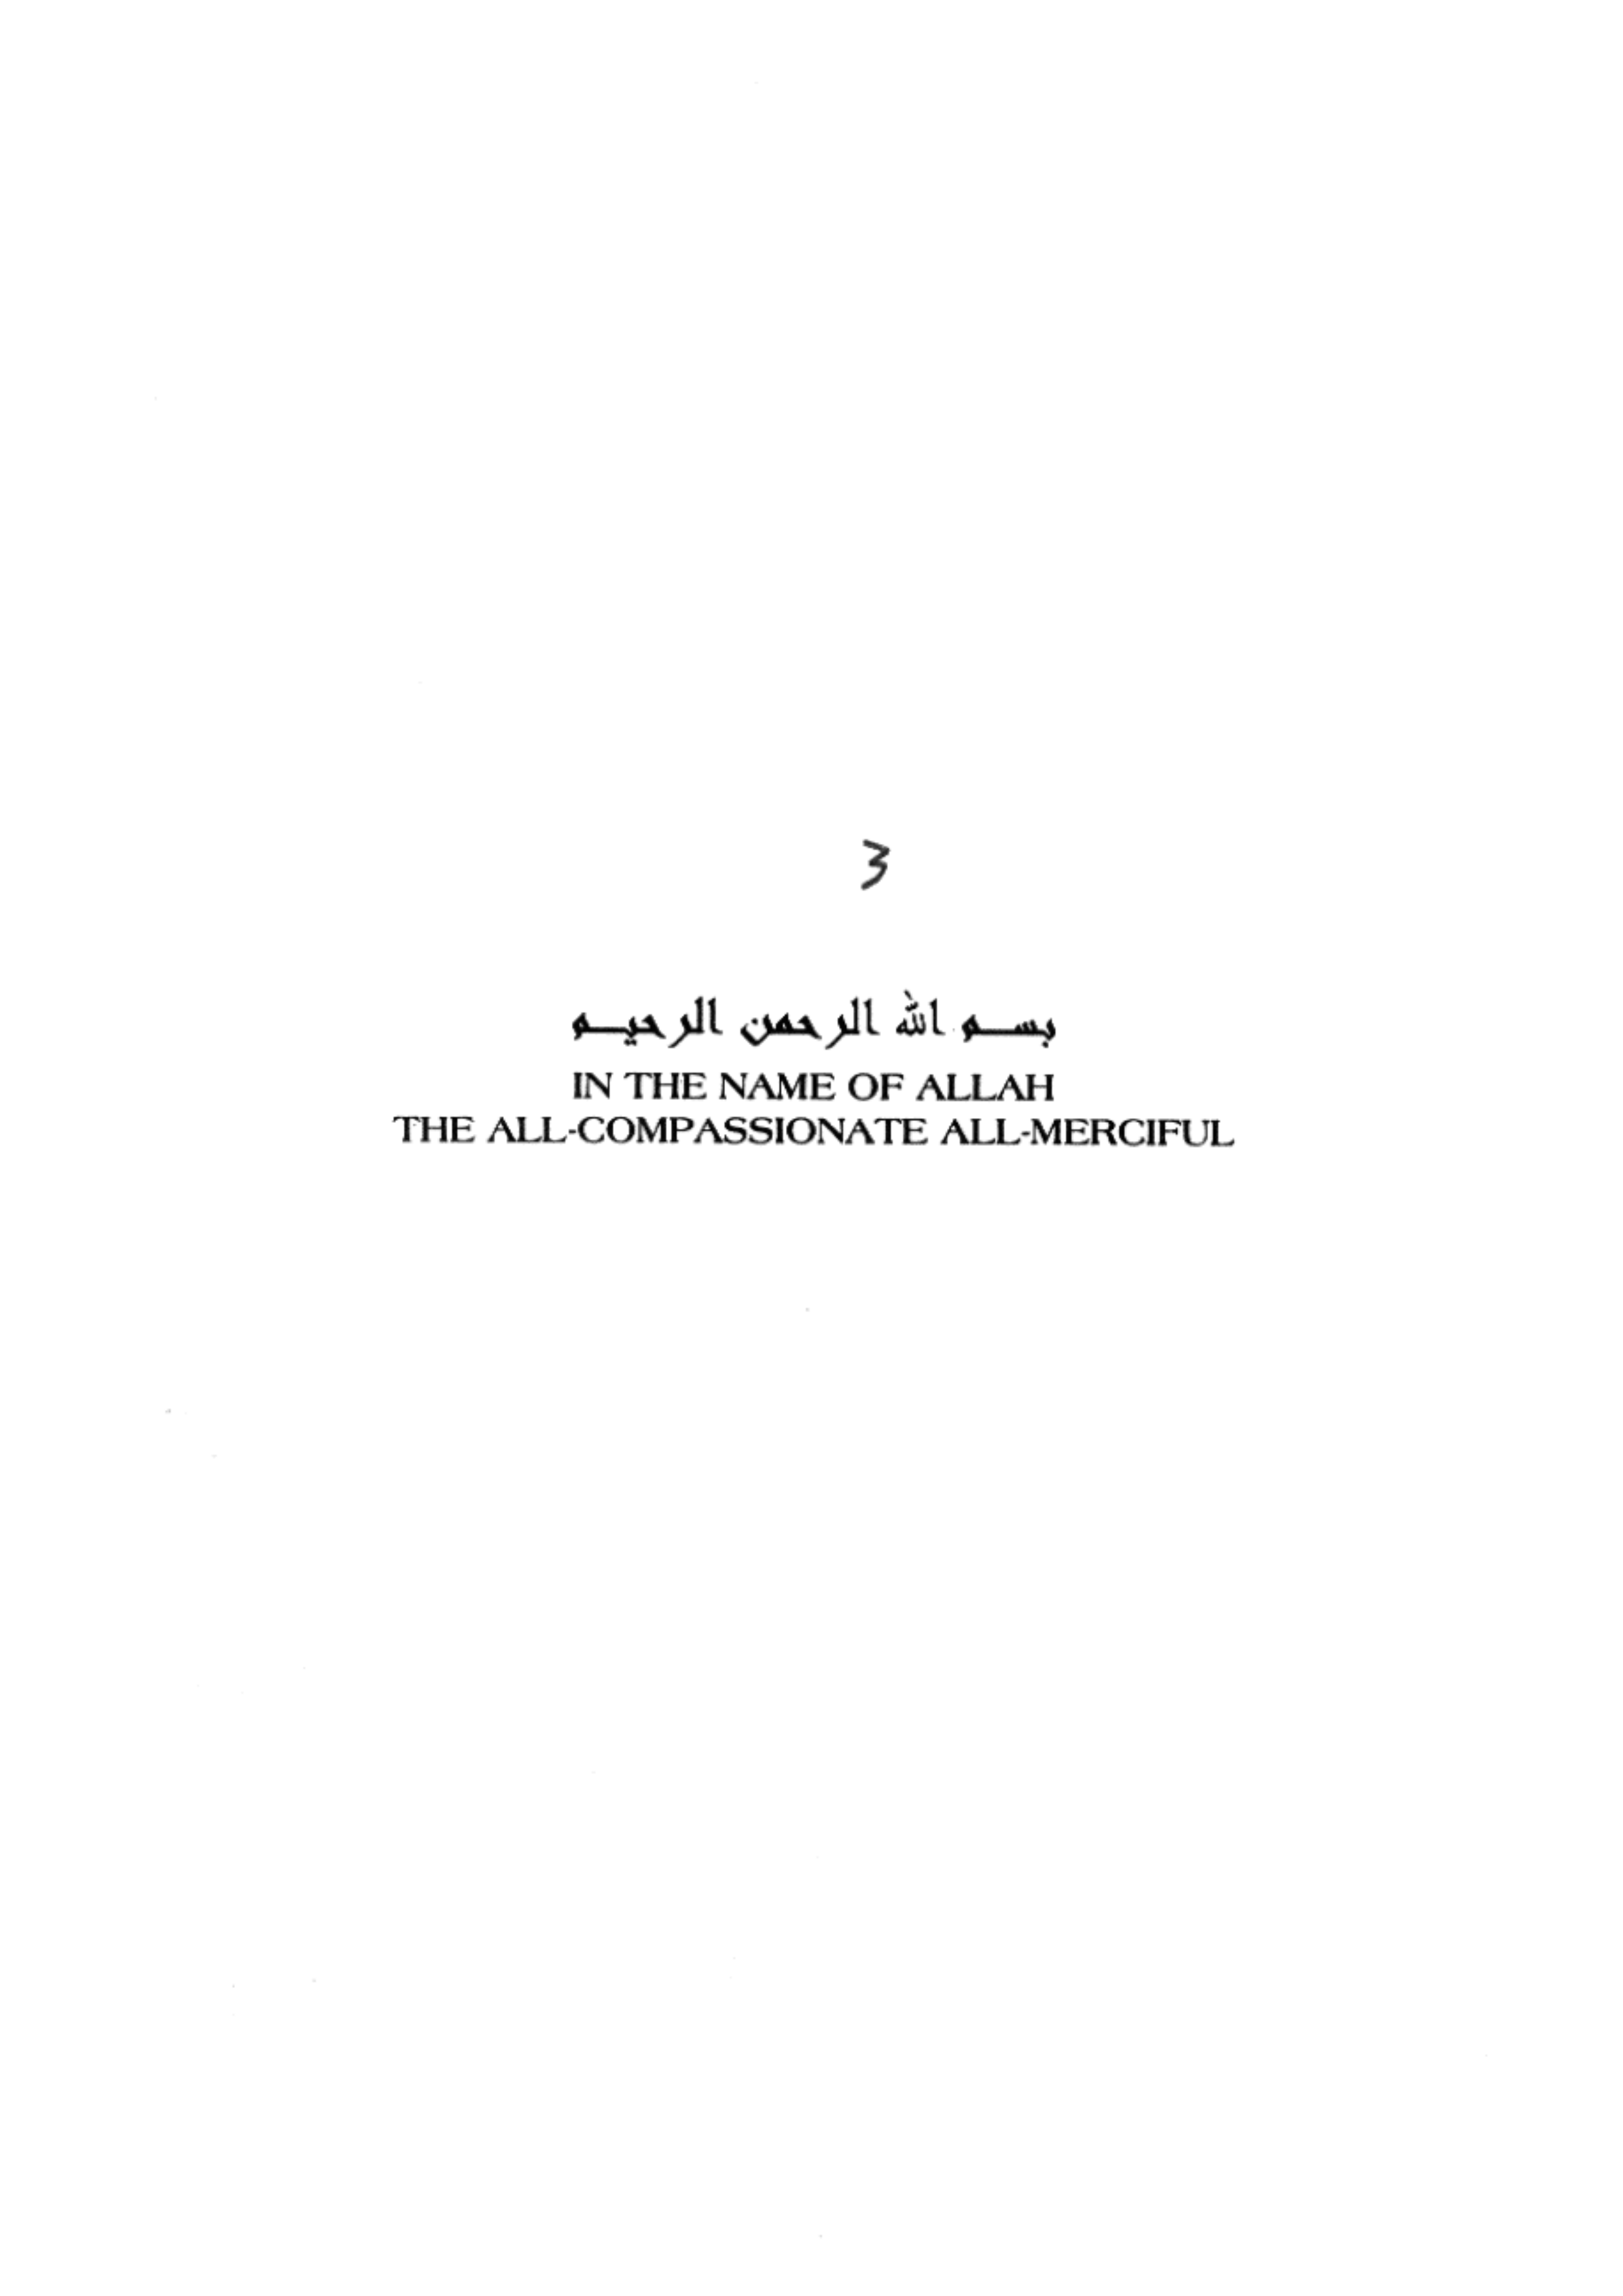 3
بسم الله الرحمن الرحيم
IN THE NAME OF ALLAH
THE ALL-COMPASSIONATE ALL-MERCIFUL